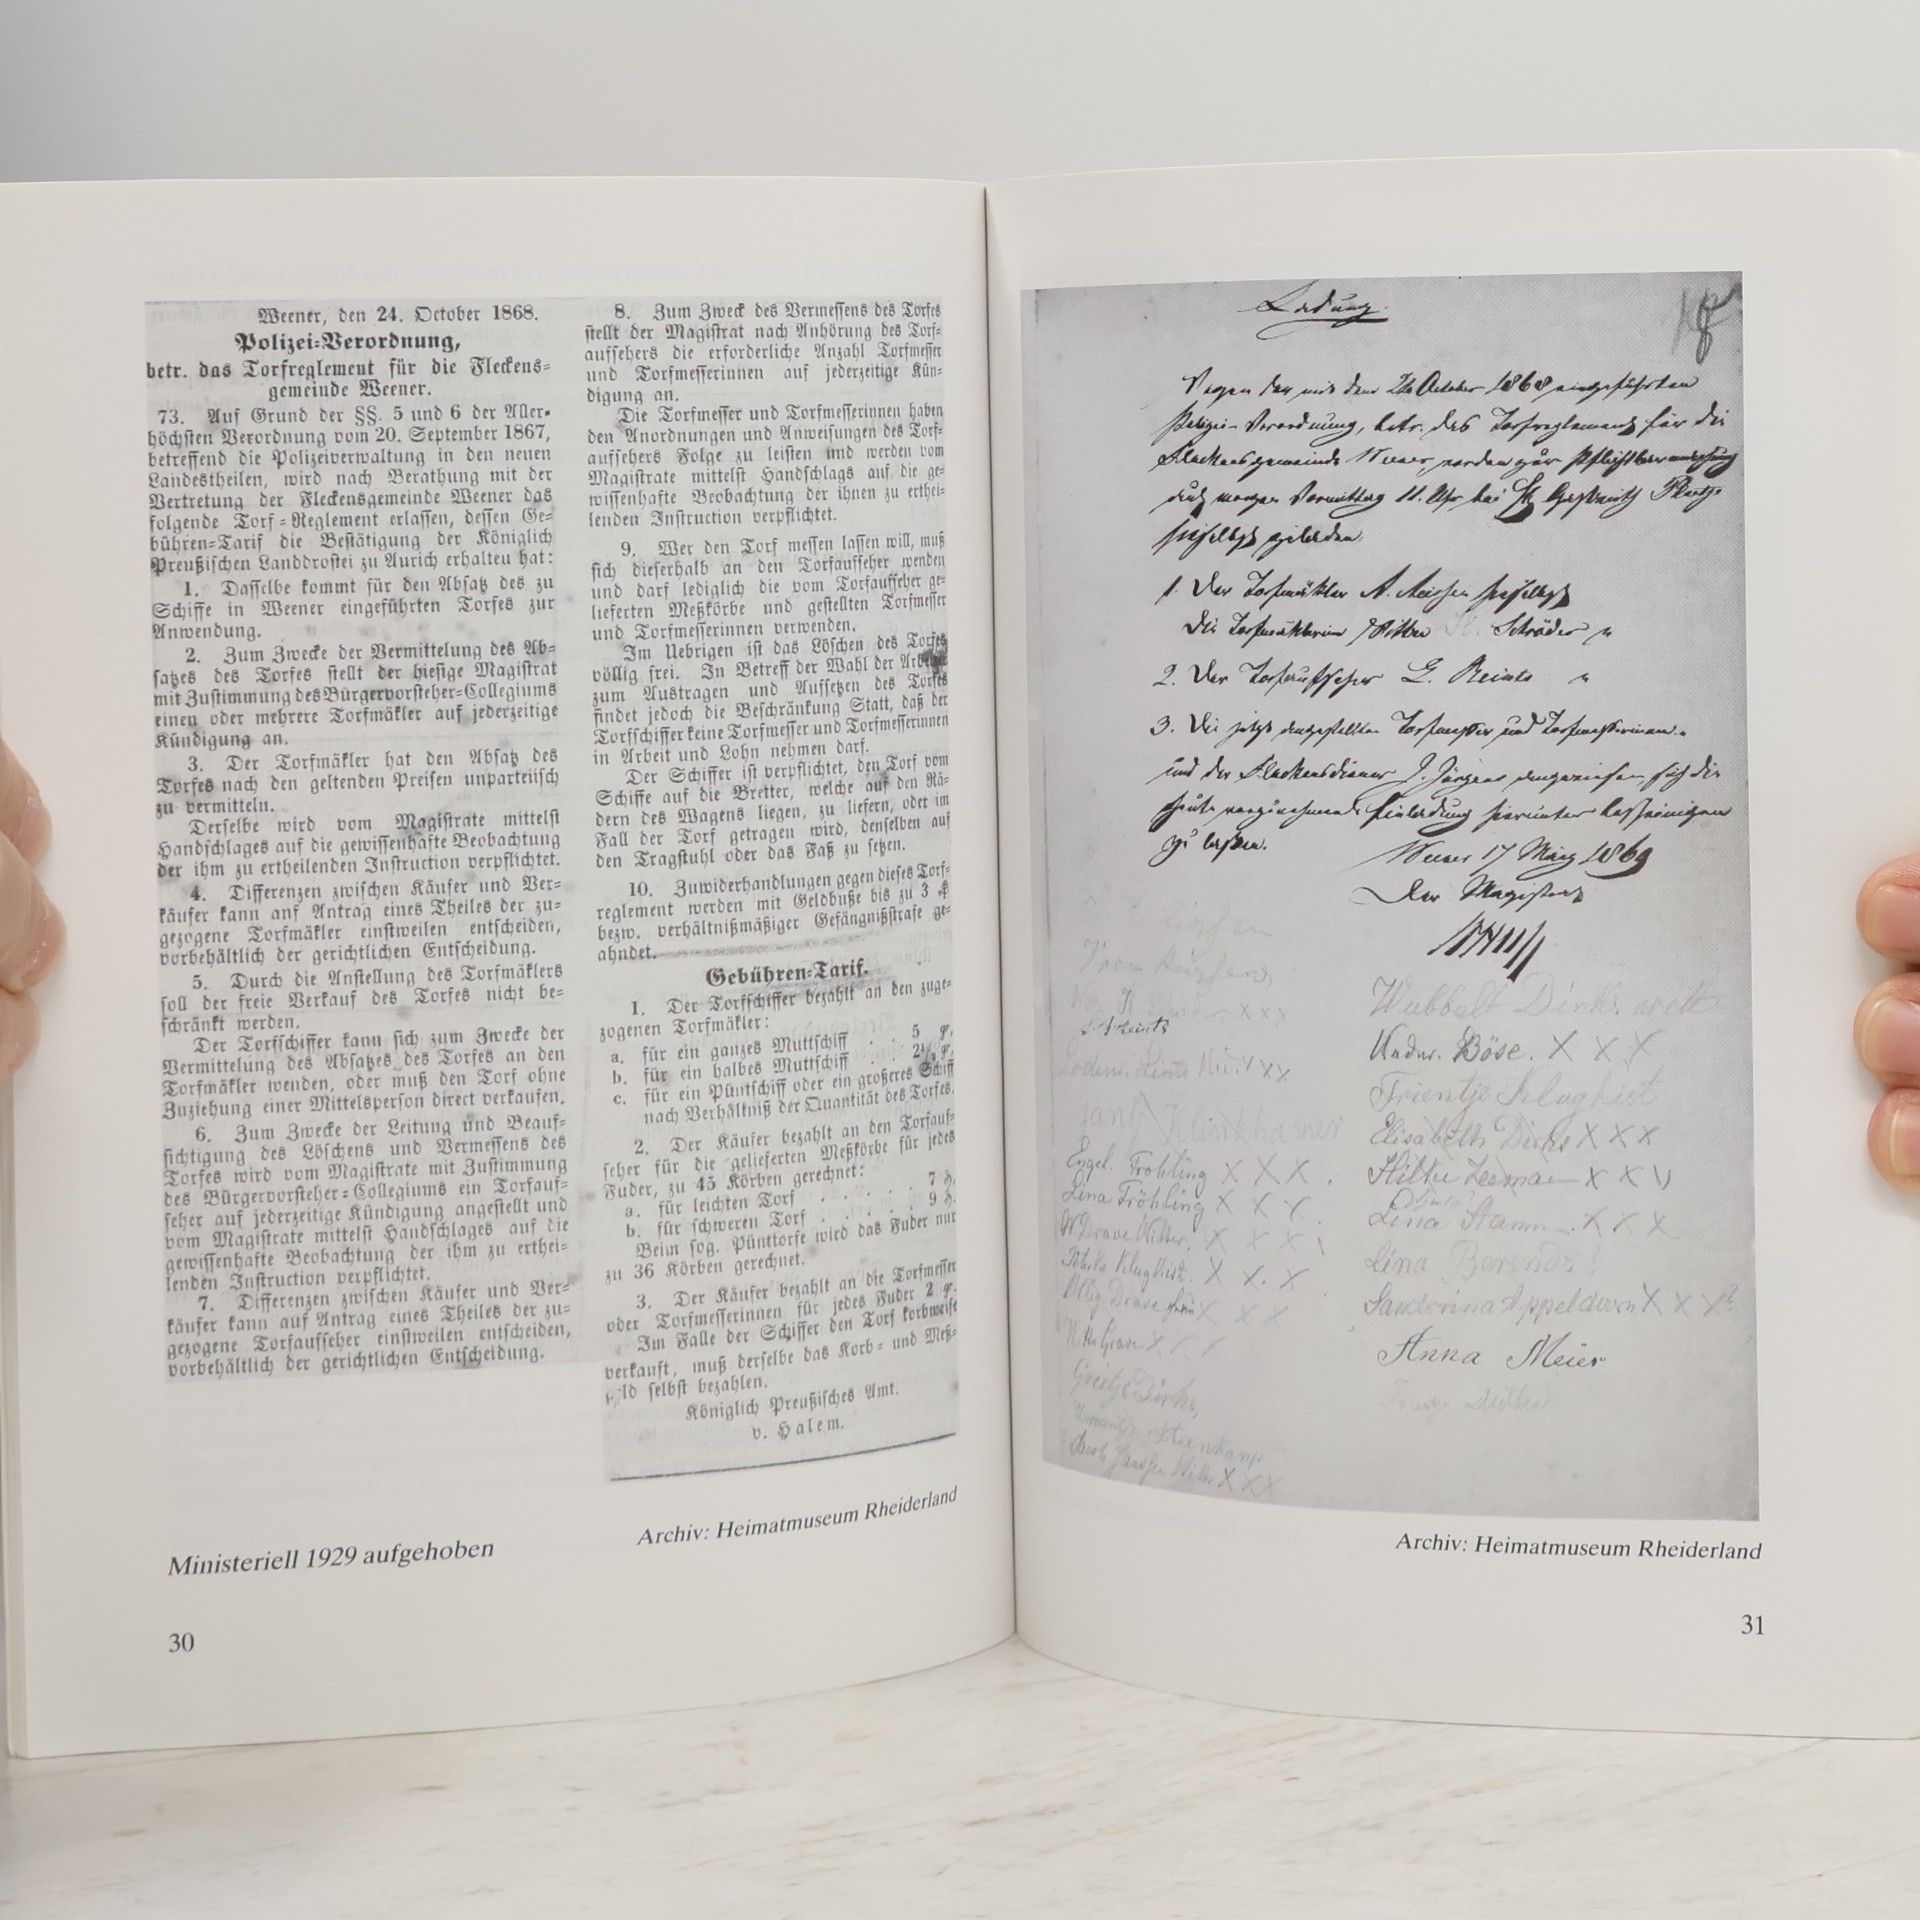 Weener, den 24. October 1868.
Polizei-Verordnung,
betr. das Torfreglement für die Fleckens-
gemeinde Weener.
73. Auf Grund der §§. 5 und 6 der Aller-
höchsten Verordnung vom 20. September 1867,
betreffend die Polizeiverwaltung in den neuen
Landestheilen, wird nach Berathung mit der
Vertretung der Fleckensgemeinde Weener das
folgende Torf-Reglement erlassen, dessen Ge-
bühren-Tarif die Bestätigung der Königlich
Preußischen Landdrostei zu Aurich erhalten hat:
1. Dasselbe kommt für den Absatz des zu
Schiffe in Weener eingeführten Torfes zur
Anwendung.
2. Zum Zwecke der Vermittelung des Ab-
satzes des Torfes stellt der hiesige Magistrat
mit Zustimmung des Bürgervorsteher-Collegiums
einen oder mehrere Torfmäkler auf jederzeitige
Kündigung an.
3. Der Torfmäkler hat den Absatz des
Torfes nach den geltenden Preisen unparteiisch
zu vermitteln.
Derselbe wird vom Magistrate mittelst
Handschlages auf die gewissenhafte Beobachtung
der ihm zu ertheilenden Instruction verpflichtet.
4. Differenzen zwischen Käufer und Ver-
käufer kann auf Antrag eines Theiles der zu-
gezogene Torfmäkler einstweilen entscheiden,
vorbehältlich der gerichtlichen Entscheidung.
5. Durch die Anstellung des Torfmäklers
soll der freie Verkauf des Torfes nicht be-
schränkt werden.
Der Torfschiffer kann sich zum Zwecke der
Vermittelung des Absatzes des Torfes an den
Torfmäkler wenden, oder muß den Torf ohne
Zuziehung einer Mittelsperson direct verkaufen.
6. Zum Zwecke der Leitung und Beauf-
sichtigung des Löschens und Vermessens des
Torfes wird vom Magistrate mit Zustimmung
des Bürgervorsteher-Collegiums ein Torfauf-
seher auf jederzeitige Kündigung angestellt und
vom Magistrate mittelst Handschlages auf die
gewissenhafte Beobachtung der ihm zu erthei-
lenden Instruction verpflichtet.
7. Differenzen zwischen Käufer und Ver-
käufer kann auf Antrag eines Theiles der zu-
gezogene Torfaufseher einstweilen entscheiden,
vorbehältlich der gerichtlichen Entscheidung.
8. Zum Zweck des Vermessens des Torfes
stellt der Magistrat nach Anhörung des Torf-
aufsehers die erforderliche Anzahl Torfmesser
und Torfmesserinnen auf jederzeitige Kün-
digung an.
Die Torfmesser und Torfmesserinnen haben
den Anordnungen und Anweisungen des Torf-
aufsehers Folge zu leisten und werden vom
Magistrate mittelst Handschlags auf die ge-
wissenhafte Beobachtung der ihnen zu erthei-
lenden Instruction verpflichtet.
9. Wer den Torf messen lassen will, muß
sich dieserhalb an den Torfaufseher wenden
und darf lediglich die vom Torfaufseher ge-
lieferten Meßkörbe und gestellten Torfmesser
und Torfmesserinnen verwenden.
Im Uebrigen ist das Löschen des Torfes
völlig frei. In Betreff der Wahl der Arbeiter
zum Austragen und Aufsetzen des Torfes
findet jedoch die Beschränkung Statt, daß der
Torfschiffer keine Torfmesser und Torfmesserinnen
in Arbeit und Lohn nehmen darf.
Der Schiffer ist verpflichtet, den Torf vom
Schiffe auf die Bretter, welche auf den Rä-
dern des Wagens liegen, zu liefern, oder im
Fall der Torf getragen wird, denselben auf
den Tragstuhl oder das Faß zu setzen.
10. Zuwiderhandlungen gegen dieses Torf-
reglement werden mit Geldbuße bis zu 3 ₰
bezw. verhältnißmäßiger Gefängnißstrafe ge-
ahndet.
Gebühren-Tarif.
1. Der Torfschiffer bezahlt an den zuge-
zogenen Torfmäkler:
a. für ein ganzes Muttschiff . . 5 gr.
b. für ein halbes Muttschiff . . 2½ gr.
c. für ein Püntschiff oder ein größeres Schiff
nach Verhältniß der Quantität des Torfes.
2. Der Käufer bezahlt an den Torfauf-
seher für die gelieferten Meßkörbe für jedes
Fuder, zu 45 Körben gerechnet:
a. für leichten Torf . . . . . 7 ₰.
b. für schweren Torf . . . . . 9 ₰.
Beim sog. Pünttorfe wird das Fuder nur
zu 36 Körben gerechnet.
3. Der Käufer bezahlt an die Torfmesser
oder Torfmesserinnen für jedes Fuder 2 gr.
Im Falle der Schiffer den Torf korbweise
verkauft, muß derselbe das Korb- und Meß-
geld selbst bezahlen.
Königlich Preußisches Amt.
v. Halem.
Ministeriell 1929 aufgehoben
Archiv: Heimatmuseum Rheiderland
30
Ladung.
Wegen der mit dem 24 October 1868 eingeführten
Polizei-Verordnung, betr. das Torfreglement für die
Fleckensgemeinde Weener, werden zur
auf morgen Vormittag 11 Uhr bei
hieselbst geladen.
1. Der Torfmäkler A. hieselbst
Die Torfmäklerin Schröder "
2. Der Torfaufseher L. Reints "
3. Die jetzt angestellten Torfmesser und Torfmesserinnen.
und der Fleckensdiener J. Jürgens angewiesen, sich die
Einladung hierunter bescheinigen
zu lassen.
Weener 17 März 1869
Der Magistrat
Wubbelt Dirks
Böse. X X X
Trientje Klugkist
Elisabeth Dirks X X X
X X X
Lina X X X
Lina Barends
Sanderina Appeldoorn X X X
Anna Meier
X X X
X X X
Jant Klinkhamer
Engel. Fröhling X X X
Lina Fröhling X X X
X X X
Klugkist. X X X
X X X
Greetje Dirks
X X X
Archiv: Heimatmuseum Rheiderland
31